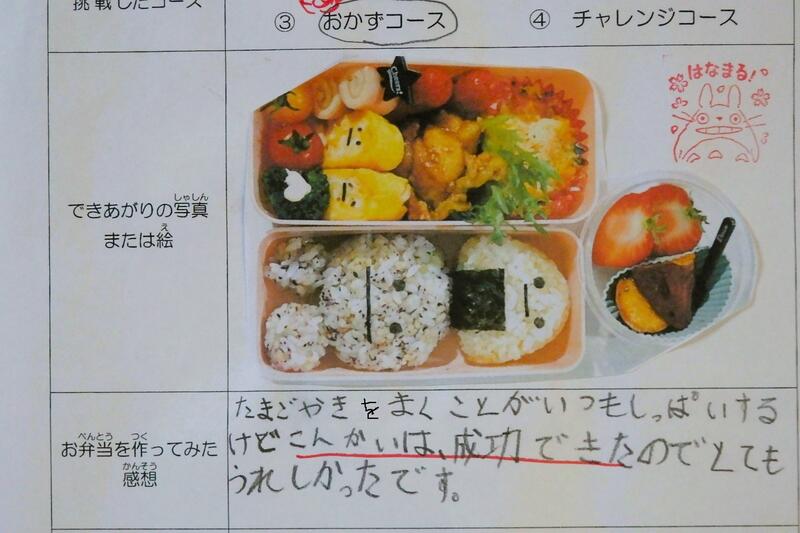 挑戦したコース
③ おかずコース ④ チャレンジコース
はなまる!
Cheers!
できあがりの写真
しゃしん
または絵
え
お弁当を作ってみた
べんとう つく
感想
かんそう
たまごやきをまくことがいつもしっぱいする
けどこんかいは、成功できたのでとても
うれしかったです。